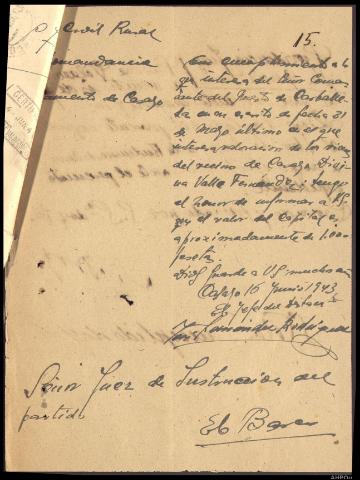 15.
Civil Rural
Comandancia
En cumplimiento a lo
que interesa el Señor Coman
dante del Puesto de Carballe
da en su escrito de fecha 31
de Mayo último en el que
interesa valoracion de los bienes
del vecino de Casayo
Valle Fernandez; tengo
el honor de informar a VS.
que el valor del Capital es
aproximadamente de 1.000
pesetas.
Dios guarde a VS muchos años
Casayo 16 Junio 1943
El Jefe del
Rodriguez
Señor Juez de Instruccion del
partido
El Barco